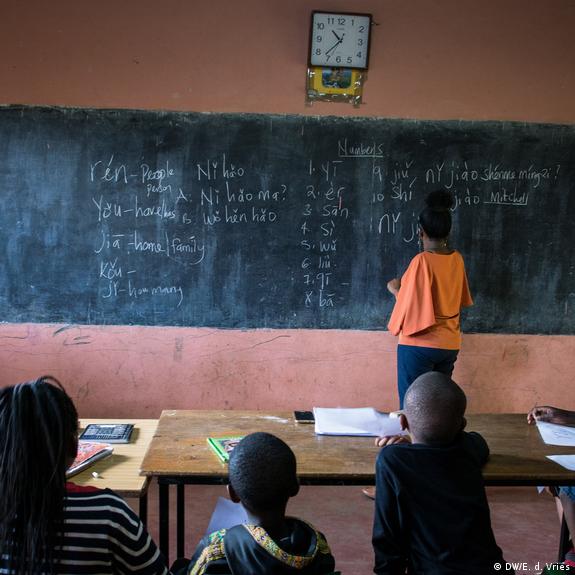 rén-People
person
Yǒu-have/has
jiā-home/family
Kǒu-
jǐ-how many
Nǐ hǎo
A: Nǐ hǎo ma?
B: Wǒ hěn hǎo
Numbers
1. yī
2. èr
3. Sān
4. Sì
5. wǔ
6. liù
7. qī
8. bā
9. jiǔ
10 Shí
nǐ jiào shénme míngzi?
jiào Mitchell
nǐ
© DW/E. d. Vries